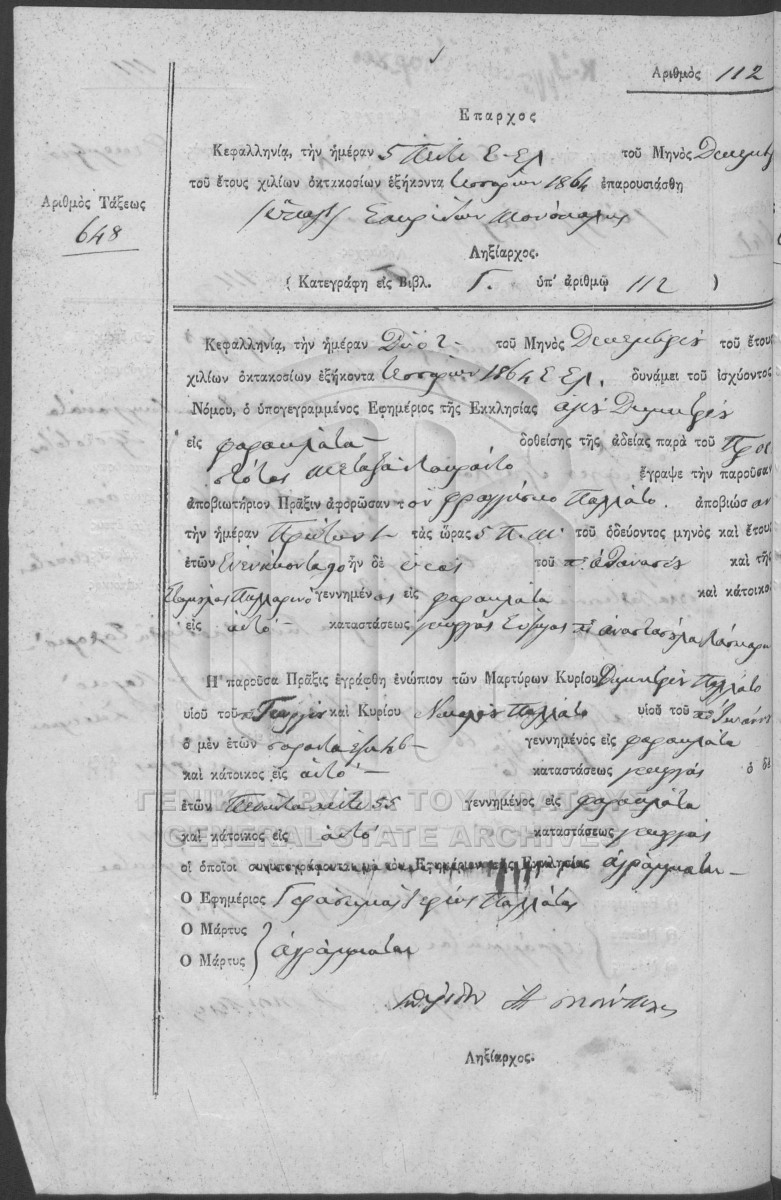 Αριθμὸς 112
Επαρχος
Κεφαλληνίᾳ, τὴν ἡμέραν 5 Πέντε Ε. Ε.λ. τοῦ Μηνὸς Δεκεμβρ
τοῦ ἔτους χιλίων ὀκτακοσίων ἑξήκοντα τεσσάρων 1864 ἐπαρουσιάσθη
Σπυρίδων
Αριθμὸς Τάξεως
648
Ληξίαρχος.
( Κατεγράφη εἰς Βιβλ. Γ. ὑπ' ἀριθμῷ 112 )
Κεφαλληνίᾳ, τὴν ἡμέραν Δύο 2 τοῦ Μηνὸς Δεκεμβρίου τοῦ ἔτους
χιλίων ὀκτακοσίων ἑξήκοντα τεσσάρων 1864 Ε. Ελ. δυνάμει τοῦ ἰσχύοντος
Νόμου, ὁ ὑπογεγραμμένος Εφημέριος τῆς Εκκλησίας ἁγίου Δημητρίου
εἰς φαρακλάτα δοθείσης τῆς ἀδείας παρὰ τοῦ Προε
στότος Μεταξά ἔγραψε τὴν παροῦσαν
ἀποβιωτήριον Πρᾶξιν ἀφορῶσαν τὸν φραγγίσκο Παλλάτο. ἀποβιώσαν
τὴν ἡμέραν Πρώτη 1 τὰς ὥρας 5 Π.Μ. τοῦ ὁδεύοντος μηνὸς καὶ ἔτους
ἐτῶν Ενενήκοντα 90 ἦν δὲ υἱὸς τοῦ π. Αθανασίου καὶ τῆς
γεννημένος εἰς φαρακλάτα καὶ κάτοικος
εἰς αὐτό καταστάσεως γεωργὸς σύζυγος π. Αναστασούλα
Η παροῦσα Πρᾶξις ἐγράφθη ἐνώπιον τῶν Μαρτύρων Κυρίου Δημητρίου Παλλάτο
υἱοῦ τοῦ π. Γεωργίου καὶ Κυρίου Νικολάου Παλλάτο υἱοῦ τοῦ π. Ιωάνν
ὁ μὲν ἐτῶν σαράντα έξη 46 γεννημένος εἰς φαρακλάτα
καὶ κάτοικος εἰς αὐτό καταστάσεως γεωργός ὁ δὲ
ἐτῶν Πενήντα πέντε 55 γεννημένος εἰς φαρακλάτα
καὶ κάτοικος εἰς αὐτό καταστάσεως γεωργός
οἱ ὁποῖοι συνυπογράφονται μὲ τὸν Εφημέριον τῆς Εκκλησίας ἀγράμματοι
Ο Εφημέριος Γεράσιμος Ιερεύς Παλλάτος
Ο Μάρτυς
Ο Μάρτυς
ἀγράμματοι
Ληξίαρχος.
ΓΕΝΙΚΑ ΑΡΧΕΙΑ ΤΟΥ ΚΡΑΤΟΥΣ
GENERAL STATE ARCHIVES